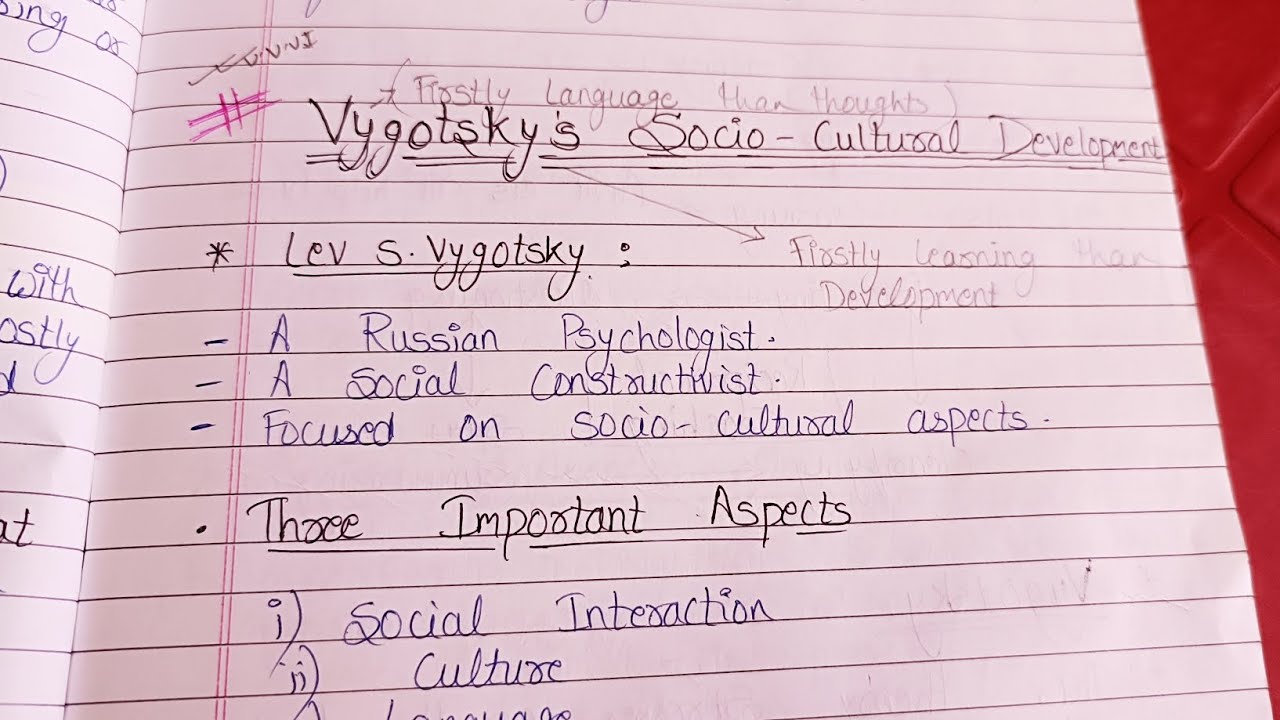 sing or
with
ostly
at
V.V.V.I
(Firstly Language than thoughts)
# Vygotsky's Socio-Cultural Development
* Lev S. Vygotsky :
Firstly Learning than
Development
- A Russian Psychologist.
- A Social Constructivist.
- Focused on socio-cultural aspects.
. Three Important Aspects
i) Social Interaction
ii) Culture
Language